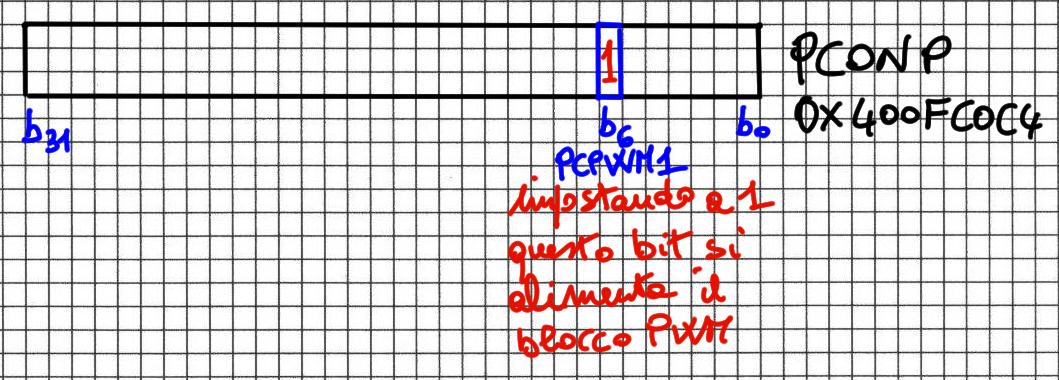 1
PCONP
0X400FC0C4
b31
b6
b0
PCPWM1
impostando a 1
questo bit si
alimenta il
blocco PWM